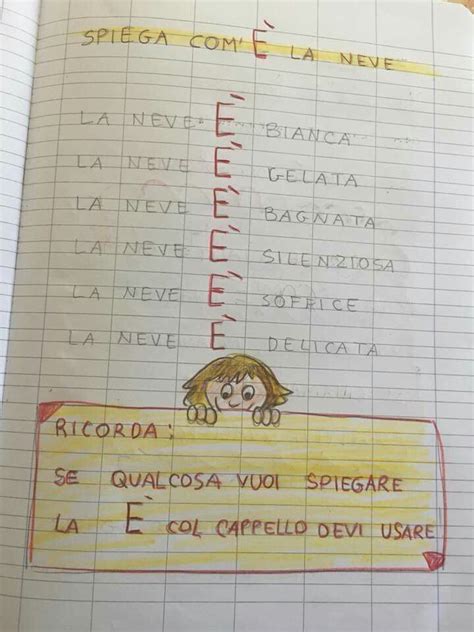 SPIEGA COM'È LA NEVE
LA NEVE È BIANCA
LA NEVE È GELATA
LA NEVE È BAGNATA
LA NEVE È SILENZIOSA
LA NEVE È SOFFICE
LA NEVE È DELICATA
RICORDA:
SE QUALCOSA VUOI SPIEGARE
LA È COL CAPPELLO DEVI USARE